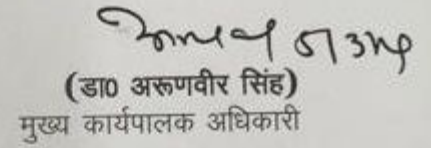 (डा० अरूणवीर सिंह)
मुख्य कार्यपालक अधिकारी